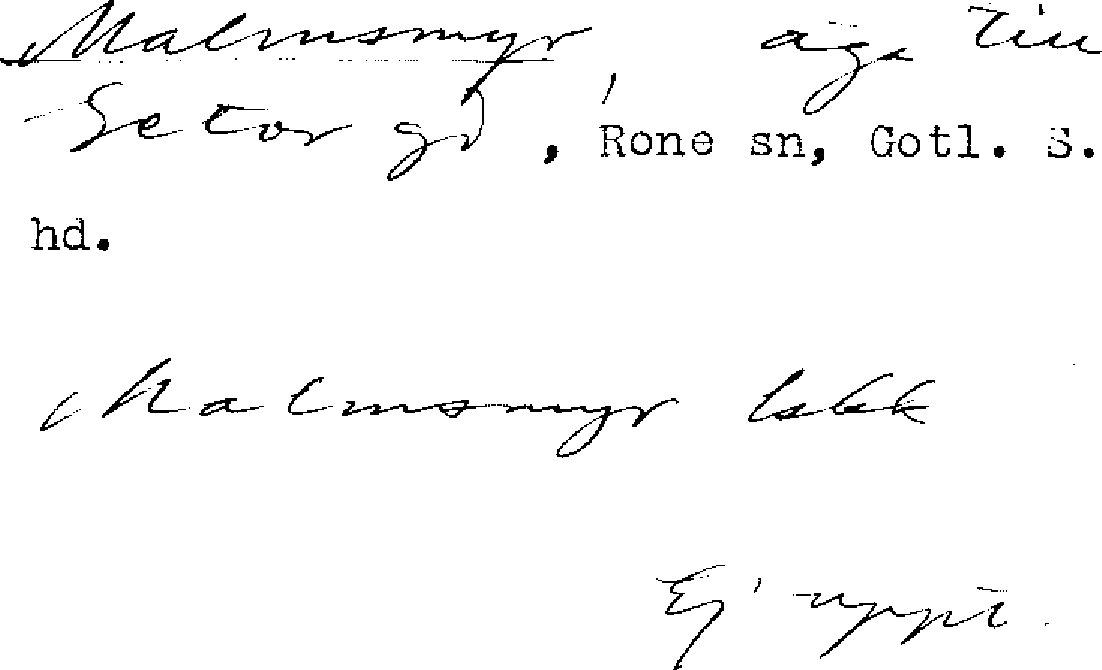 Malmsmyr, äga till
Getor gd, Rone sn, Gotl. S.
hd.
Malmsmyr lskk
Ej uppt.